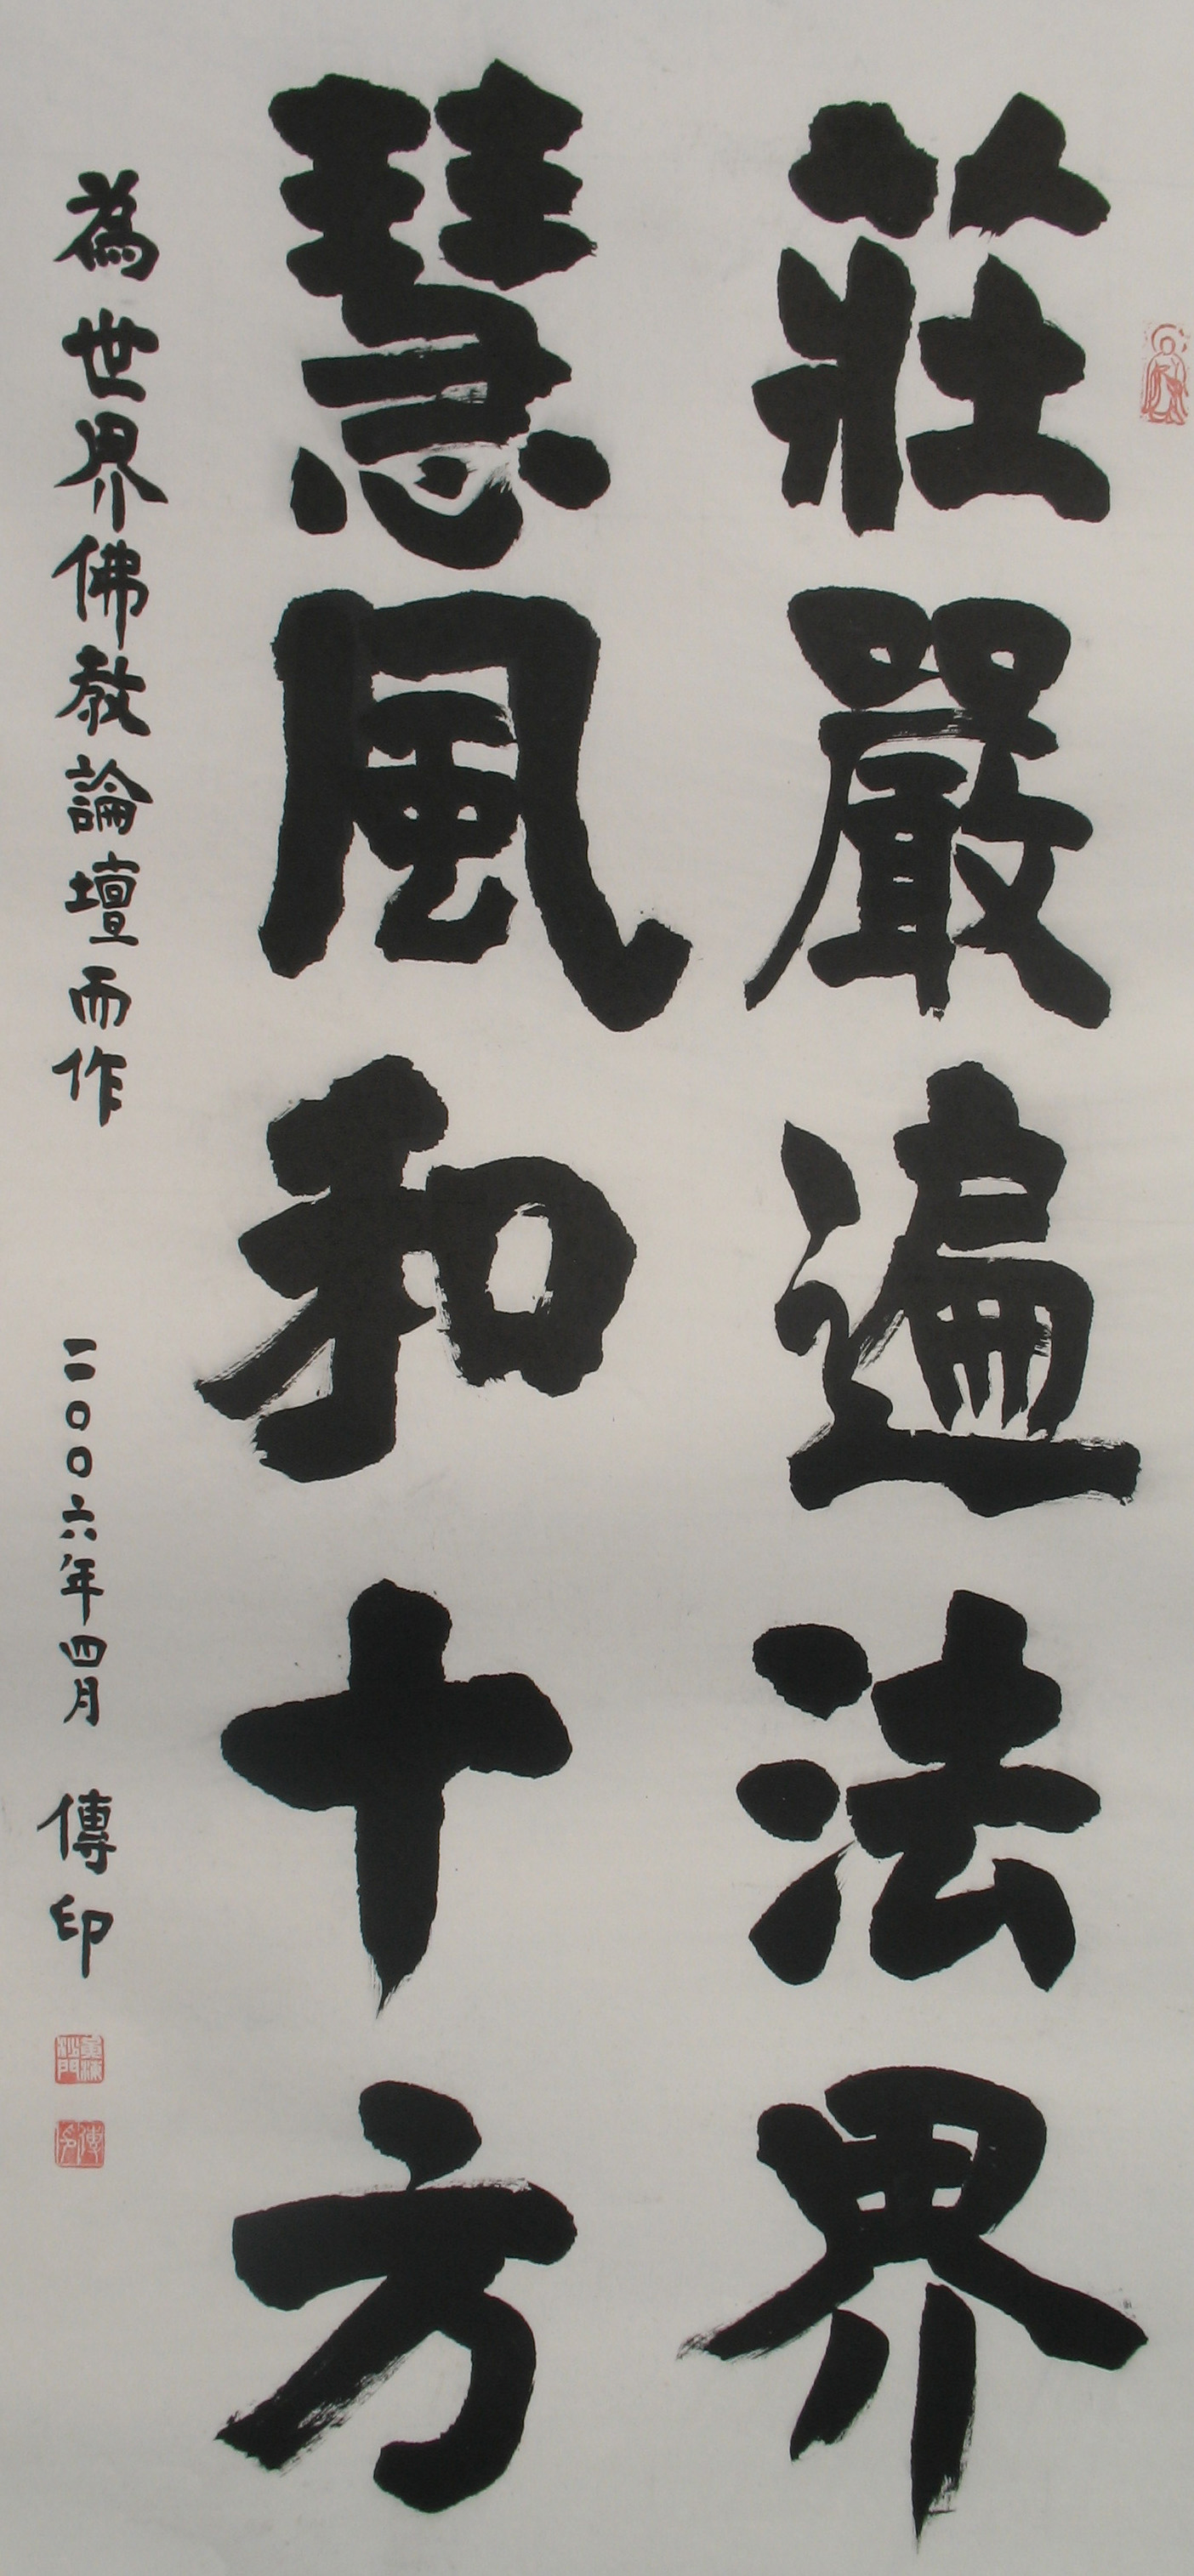 莊嚴遍法界
慧風和十方
為世界佛教論壇而作
二〇〇六年四月 傳印
傳印